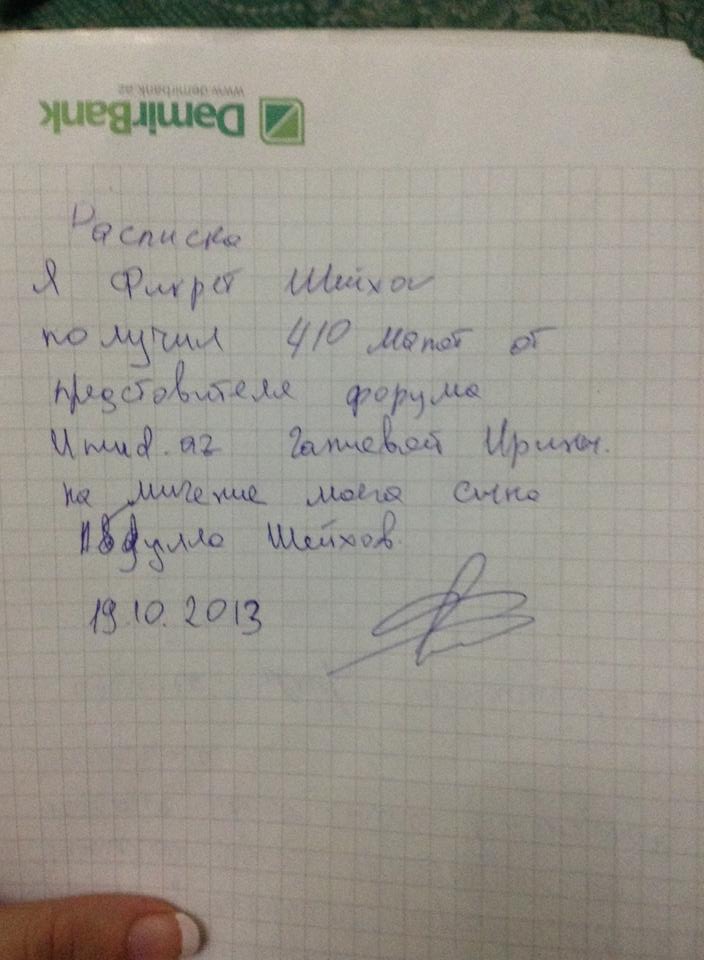 www.demirbank.az
DemirBank
Расписка
Я Фикрет Шейхов
получил 410 манат от
предстовителя форума
Umid.az Ирины.
на личение моего сына
Абдулла Шейхов.
19.10.2013